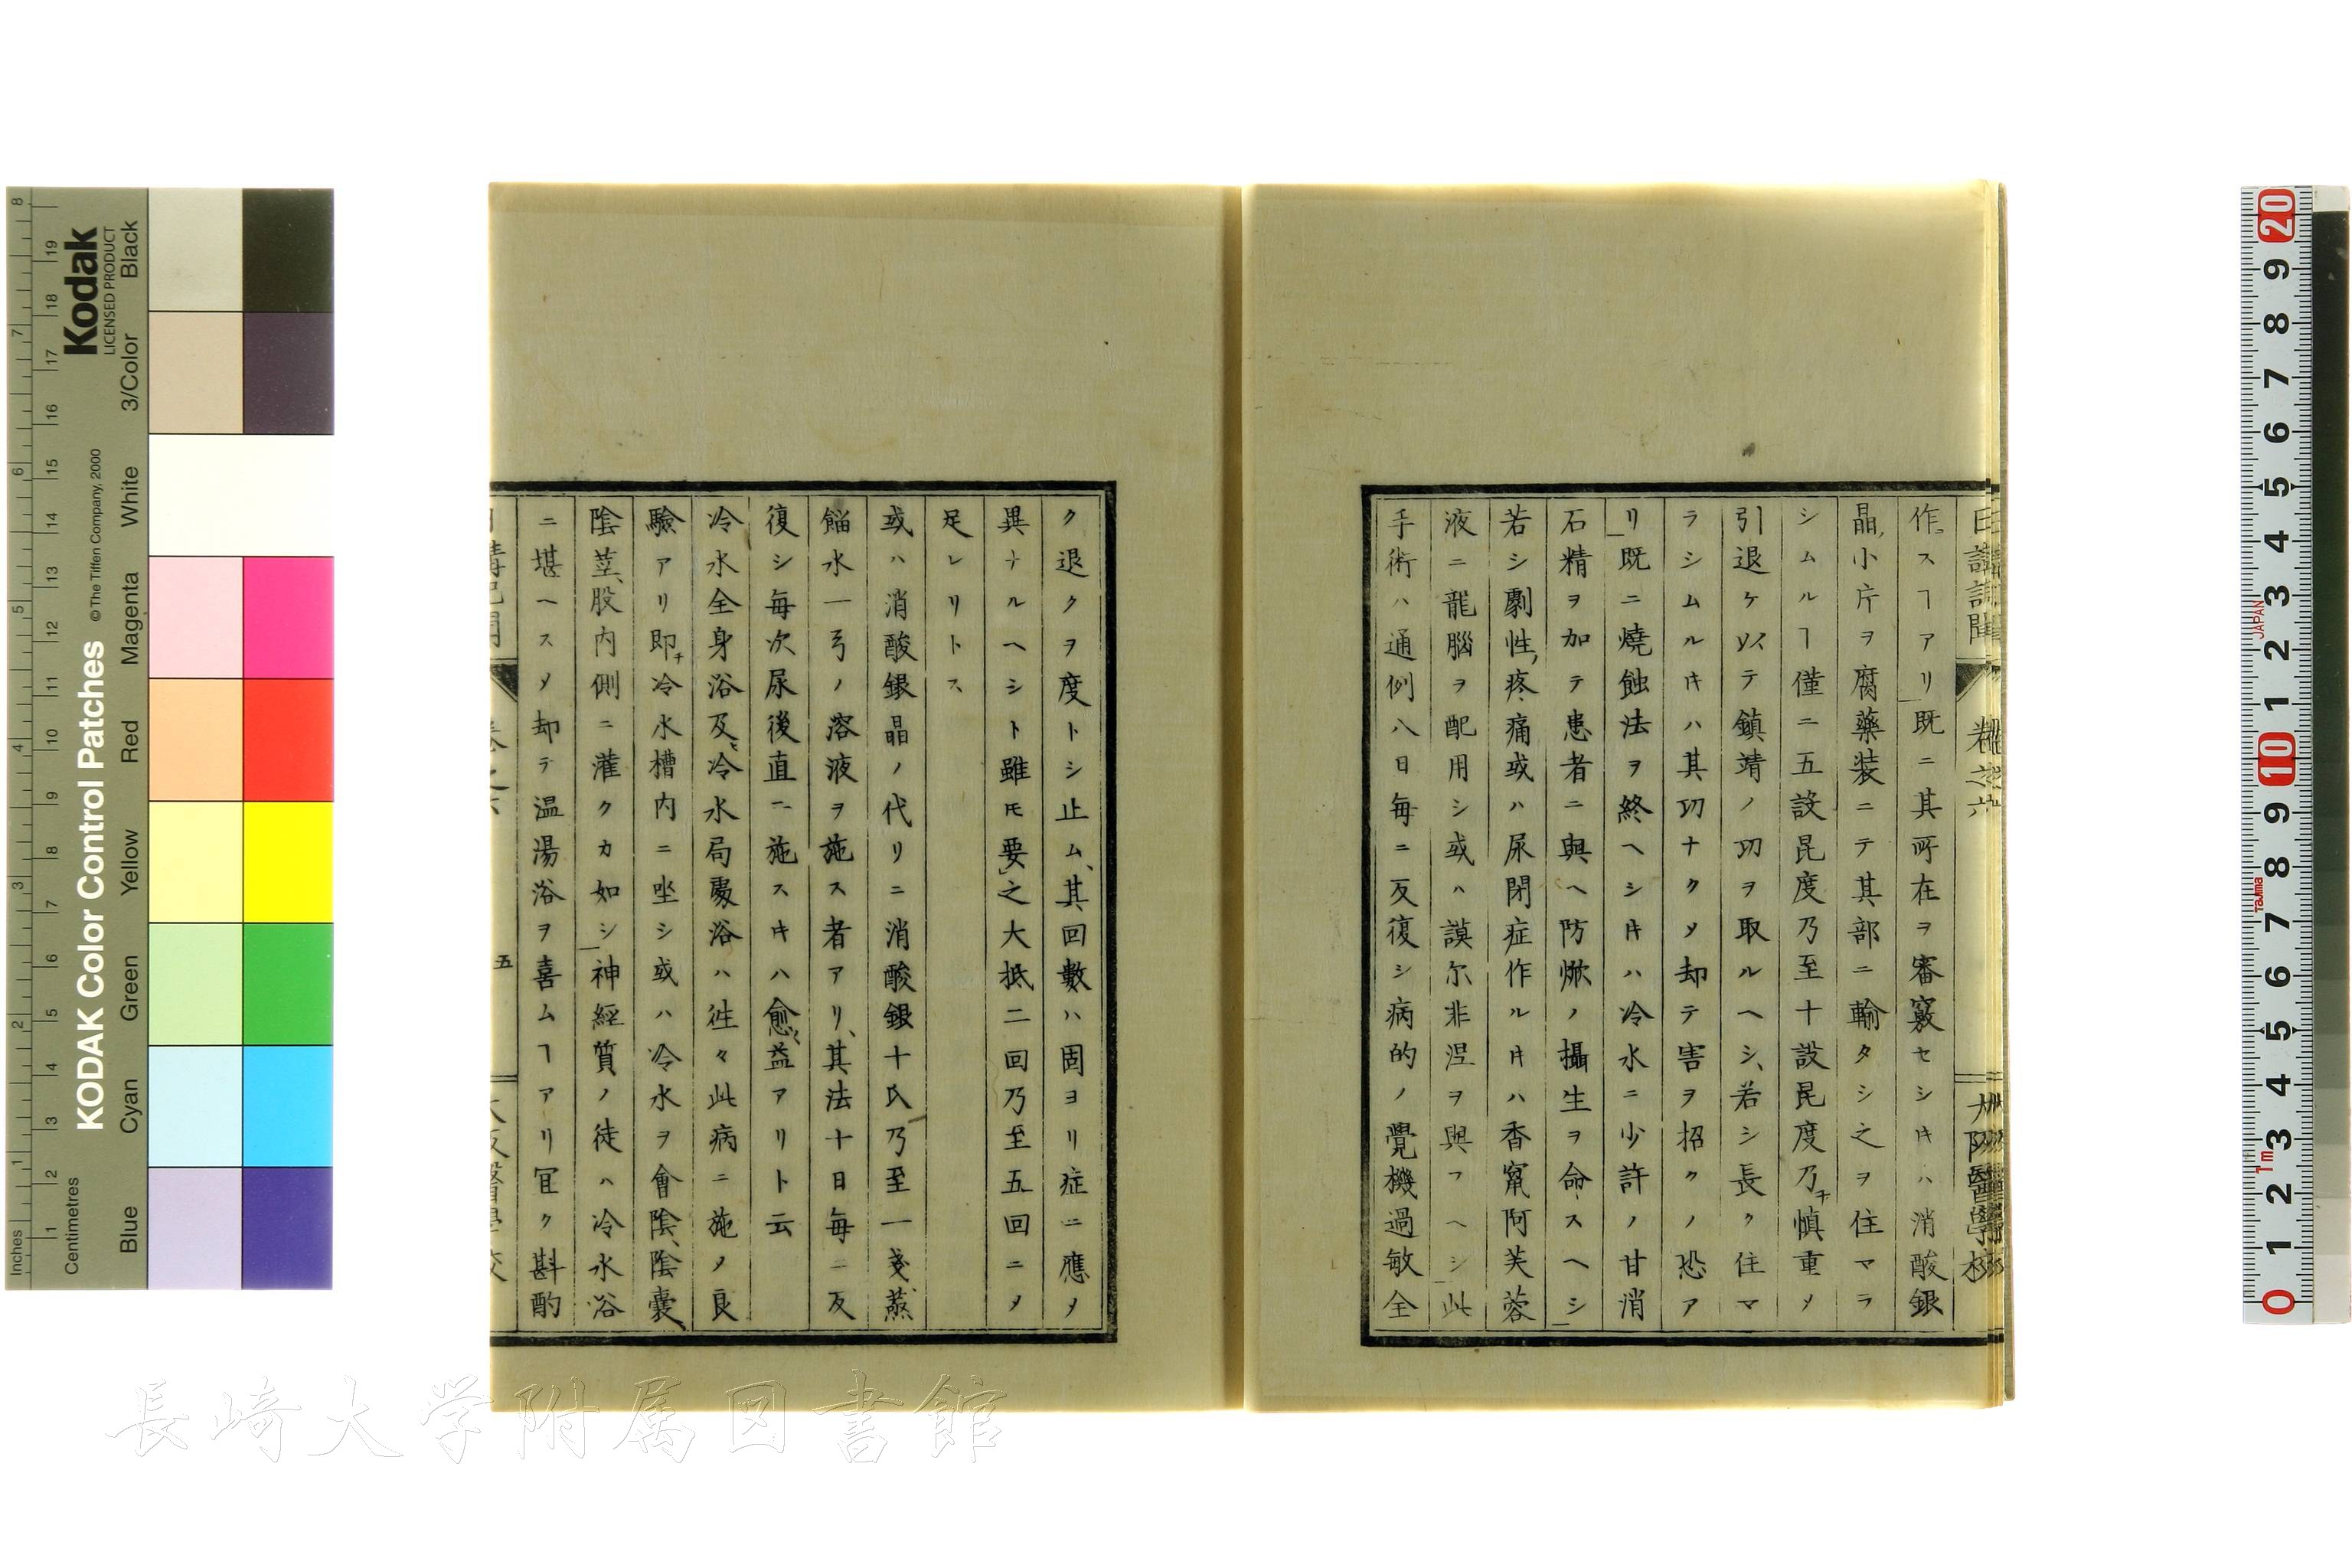 日講記聞 卷之六 大阪醫學校
作スヿアリ既ニ其所在ヲ審竅セシキハ消酸銀
晶小片ヲ腐藥装ニテ其部ニ輸タシ之ヲ住マラ
シムルヿ僅ニ五設昆度乃至十設昆度乃チ慎重メ
引退ケ以テ鎮靖ノ功ヲ取ルヘシ、若シ長ク住マ
ラシムルキハ其功ナクメ却テ害ヲ招クノ恐ア
リ既ニ燒蝕法ヲ終ヘシキハ冷水ニ少許ノ甘消
石精ヲ加テ患者ニ與ヘ防焮ノ攝生ヲ命スヘシ
若シ劇性疼痛或ハ尿閉症作ルキハ香竄阿芙蓉
液ニ龍腦ヲ配用シ或ハ謨尓非涅ヲ與フヘシ此
手術ハ通例八日毎ニ反復シ病的ノ覺機過敏全
ク退クヲ度トシ止ム、其回數ハ固ヨリ症ニ應メ
異ナルヘシト雖モ要之大抵二回乃至五回ニメ
足レリトス
或ハ消酸銀晶ノ代リニ消酸銀十氏乃至一戔蒸
餾水一弓ノ溶液ヲ施ス者アリ、其法十日毎ニ反
復シ毎次尿後直ニ施スキハ愈益アリト云
冷水全身浴及ヒ冷水局處浴ハ徃々此病ニ施メ良
驗アリ即チ冷水槽内ニ坐シ或ハ冷水ヲ會陰、陰嚢、
陰莖、股内側ニ灌クカ如シ神經質ノ徒ハ冷水浴
ニ堪ヘスメ却テ温湯浴ヲ喜ムヿアリ冝ク斟酌
日講記聞 卷之六 五 大阪醫學校
KODAK Color Control Patches
© The Tiffen Company, 2000
Kodak
LICENSED PRODUCT
Inches
Centimetres
Blue Cyan Green Yellow Red Magenta White 3/Color Black
長崎大学附属図書館
JAPAN
Tajima
1m